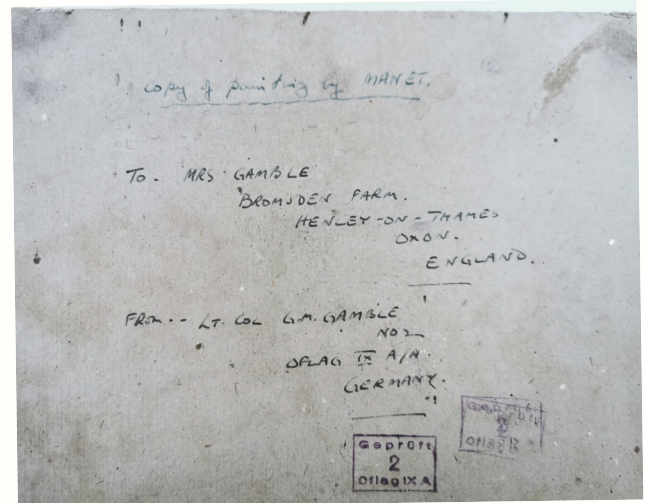 copy of painting by MANET.
TO. MRS GAMBLE
BROMSDEN FARM.
HENLEY-ON-THAMES
OXON.
ENGLAND.
FROM.- LT. COL G.M. GAMBLE
NO 2
OFLAG IX A/H
GERMANY.
Geprüft
2
Oflag IX A
Geprüft
2
Oflag IX